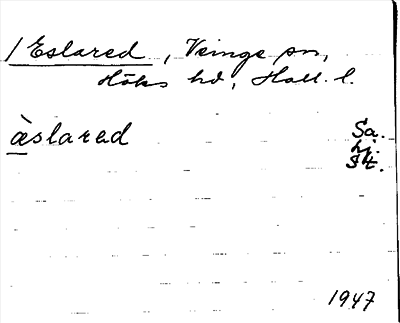 /Eslared, Veinge sn,
Höks hd, Hall. l.
æ̀slared Sa.
hj.
St.
1947